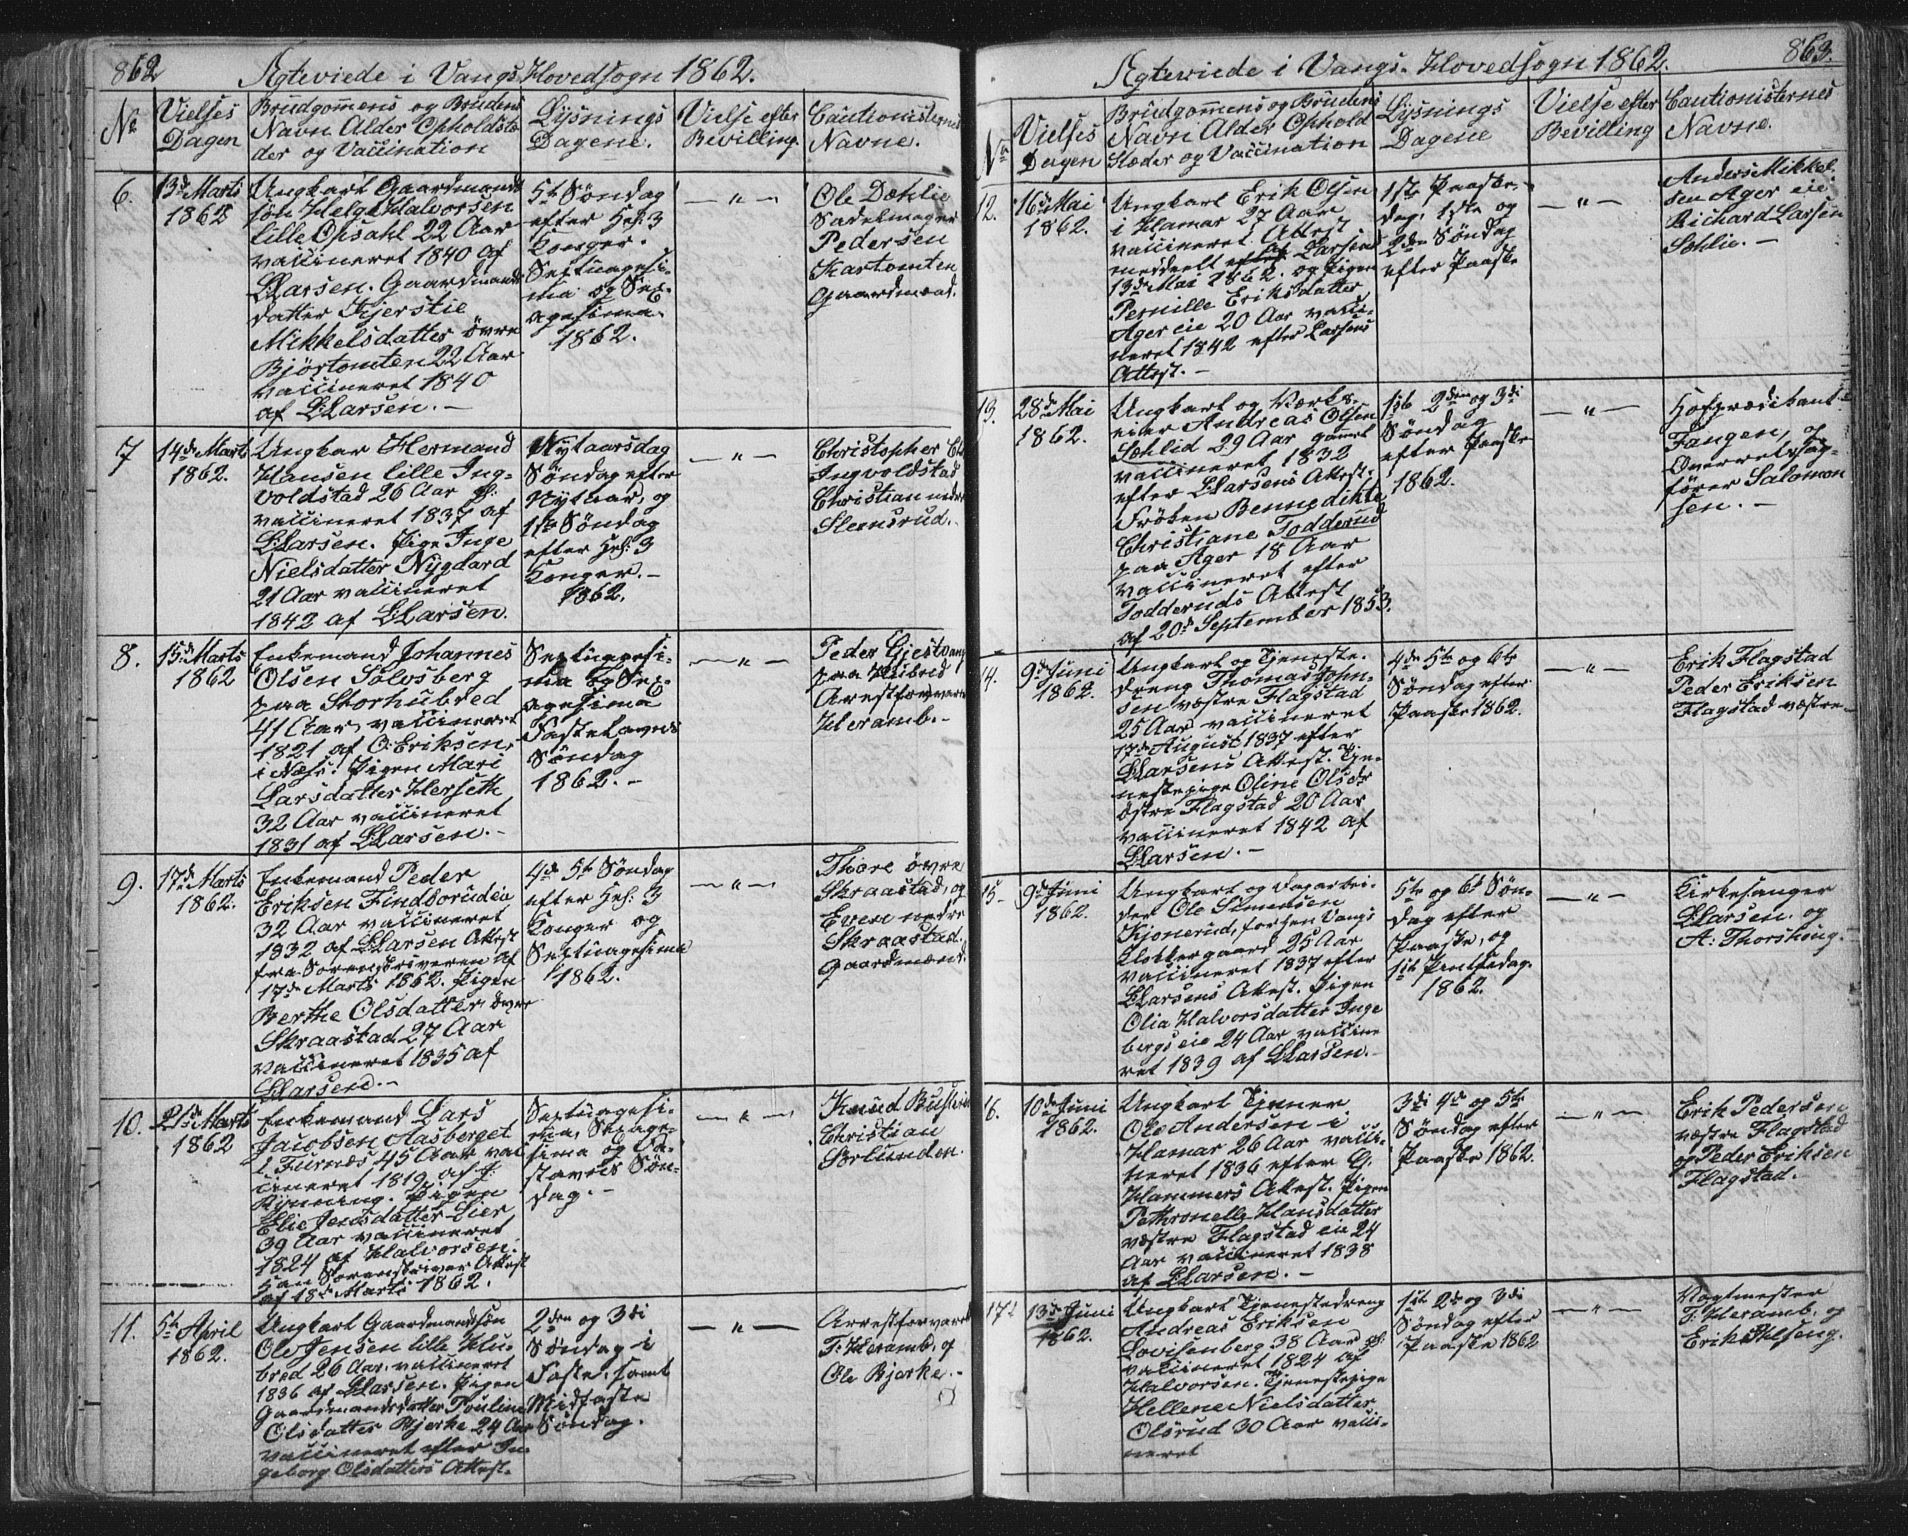 862
Ægteviede i Vangs Hovedsogn 1862.
No
Vielses Dagen
Brudgommens og Brudens
Navn Alder Opholdste
der og Vaccination
Lysnings
Dagene.
Vielse efter
Bevilling.
Cautionisternes
Navne.
6.
13de Marts
1862
Ungkarl Gaardmands
søn Helge Halvorsen
lille Opsahl 22 Aar
vaccineret 1840 af
L. Larsen. Gaardmands
datter Kjerstie
Mikkelsdatter övre
Bjørtomten 22 Aar
vaccineret 1840
af L. Larsen. –
5te Søndag
efter Hel: 3
Konger.
Septuagesi-
ma og Sex-
agesima
1862.
— " —
Ole Dæhlie
Sadelmager
Pedersen
Kartomten
Gaardmænd.
7
14de Marts
1862.
Ungkar Hermand
Hansen lille Ing-
voldstad 26 Aar gl:
vaccineret 1837 af
L. Larsen. Pige Inge
Nielsdatter Nygaard
21 Aar vaccineret
1842 af L. Larsen.
Nytaarsdag
Søndag efter
Nytaar, og
1ste Søndag
efter Hel: 3
Konger. –
1862.
— " —
Christopher
Ingvoldstad
Christian nedre
Steensrud. –
8.
15de Marts
1862
Enkemand Johannes
Olsen Solvsberg
paa Storhubred
41 Aar, vaccineret
1821 af O: Eriksen,
i Næs. Pigen Mari
Larsdatter Herseth
32 Aar vaccineret
1831 af L. Larsen. –
Septuagesi-
ma og Sex-
agesima
Fastelavns
Søndag
1862. –
— " —
Peder Gjestvang
paa Hubred
Arestforvare
Heramb. –
9.
17de Marts
1862.
Enkemand Peder
Eriksen Finsborud eie
32 Aar vaccineret
1832 af L. Larsen Attest
fra Sorenskriveren af
17de Marts 1862. Pigen
Berthe Olsdatter över
Skraastad 27 Aar
vaccineret 1835 af
L. Larsen. –
4de 5te Søndag
efter Hel: 3
Konger og
Septuagesima
1862.
— " —
Thore övre
Skraastad, og
Even nedre
Skraastad.
Gaardmænd.
10.
21de Marts
1862
Enkemand Lars
Jacobsen Aasberget
i Furnæs 45 Aar vac
cineret 1819 af J.
Rynning. Pigen
Elie Jensdatter Lier
39 Aar vaccineret
1824 af Halvorsen.
Sorenskriver Attest
af 18de Marts 1862.
Septuagesi-
ma, Sexage-
sima og Fa-
stelavns Søn-
dag. –
— " —
Knud
Christian
Brlunden.
11.
5te April
1862.
Ungkarl Gaardmandssøn
Ole Jensen lille Hu-
bred 26 Aar, vaccineret
1836 af L. Larsen. Pigen
Gaardmandsdatter Pouline
Olsdatter Bjerke 24 Aar
vaccineret efter In-
geborg Olsdatters Attest.
2den og 3di
Søndag i
Faste, samt
Midfaste
Søndag.
— " —
Arrestforvarer
F: Heramb, og
Ole Bjerke. –
863.
Ægteviede i Vangs Hovedsogn 1862.
No
Vielses
Dagen
Brudgommens og Brudens
Navn Alder Ophold
Stæder og Vaccination
Lysnings
Dagene
Vielse efter
Bevilling
Cautionisternes
Navne.
12.
16de Mai
1862.
Ungkarl Erik Olsen
i Hamar 27 Aar
vaccineret. Attest
meddeelt af Larsens
13de Mai 1862. og Pigen
Pernille Eriksdatter
Ager eie 20 Aar vacci-
neret 1842 efter Larsens
Attest. –
1ste Paaske-
dag, 1ste og
2den Søndag
efter Paaske
— " —
Anders Mikkel-
sen Ager eie
Richard Larsen
Sohlie. –
13.
28de Mai
1862.
Ungkarl og Værks-
eier Andreas Olsen
Sohlid 29 Aar gammel
vaccineret 1832
efter L. Larsens Attest.
Frøken Bennedikte
Christiane Todderud
paa Ager 18 Aar
vaccineret efter
Todderuds Attest
af 20de September 1853.
1ste 2den og 3di
Søndag
efter Paaske
1862.
— " —
Hofprædikant
Fangen, og
Overretssag-
fører Salomon
sen. –
14.
9de Juni
1862.
Ungkarl og Tjeneste-
dreng Thomas John-
sen vestre Flagstad
25 Aar vaccineret
17de August 1837 efter
L. Larsens Attest. Tje-
nestepige Oline Olsdr
östre Flagstad 20 Aar
vaccineret 1842 af
L. Larsen. –
4de 5te og 6te
Søndag efter
Paaske 1862.
— " —
Erik Flagstad
Peder Eriksen
Flagstad væstre –
15.
9de Juni
1862.
Ungkarl og Dagarbei-
der Ole Simensen
Kjonerud, Vangs
Klokkergaard 25 Aar
vaccineret 1837 efter
L. Larsens Attest. Pigen
Olia Halvorsdatter Inge
bergs eie 24 Aar vaccine
ret 1839 af L. Larsen. –
5te og 6te Søn-
dag efter
Paaske, og
1ste Pintsedag.
1862.
— " —
Kirkesanger
L. Larsen. og
A: Thorshaug.
16.
10de Juni
1862.
Ungkarl Tjener
Ole Andersen i
Hamar 26 Aar vacci-
neret 1836 efter G.
Hammers Attest. Pigen
Pethronelle Hansdatter
væstre Flagstad eie 24
Aar vaccineret 1838
af L. Larsen. –
3di 4de og 5te
Søndag efter
Paaske 1862.
— " —
Erik Pedersen
væstre Flagstad
og Peder Eriksen
Flagstad.
17.
13de Juni
1862.
Ungkarl Tjenestedreng
Andreas Eriksen
Lovisenberg 38 Aar gl:
vaccineret 1824 af
Halvorsen. Tjenestepige
Hellene Nielsdatter
Olsrud 30 Aar vacci-
neret
1ste 2de og 3di
Søndag efter
Paaske 1862
— " —
Vagtmester
F: Heramb, og
Erik Helseng.